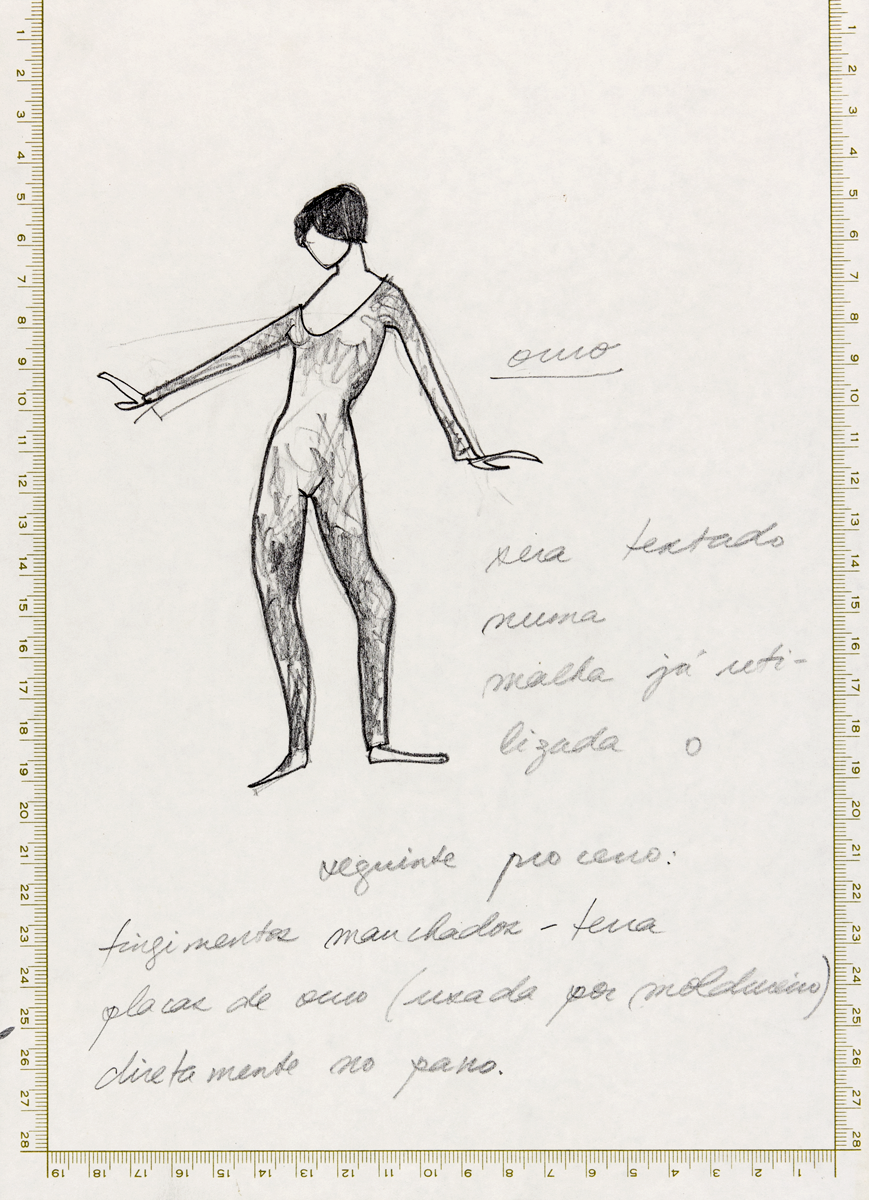 1 2 3 4 5 6 7 8 9 10 11 12 13 14 15 16 17 18 19 20 21 22 23 24 25 26 27 28
ouro
sera testado
numa
malha já uti-
lizada o
seguinte processo:
tingimentos manchados - terra
placas de ouro (usada por moldureiro)
diretamente no pano.
1 2 3 4 5 6 7 8 9 10 11 12 13 14 15 16 17 18 19 20 21 22 23 24 25 26 27 28
19 18 17 16 15 14 13 12 11 10 9 8 7 6 5 4 3 2 1